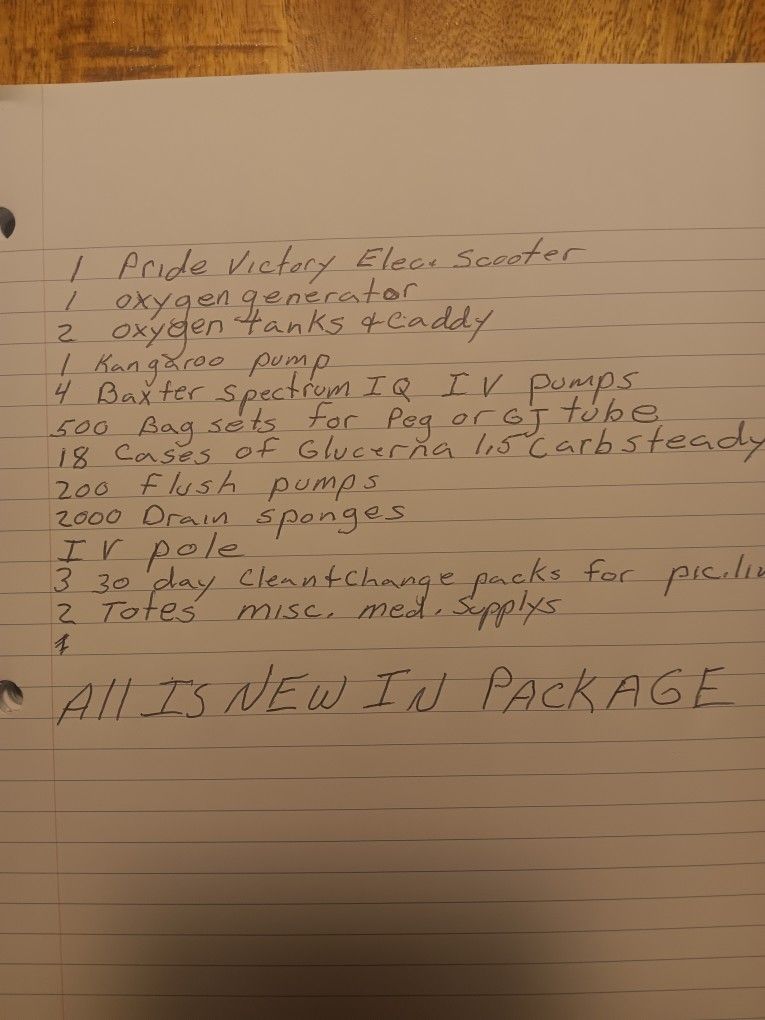 1 Pride Victory Elec. Scooter
1 oxygen generator
2 oxygen tanks & Caddy
1 Kangaroo pump
4 Baxter Spectrum IQ IV pumps
500 Bag sets for Peg or GJ tube
18 Cases of Glucerna 1.5 Carbsteady
200 flush pumps
2000 Drain sponges
IV pole
3 30 day Clean+Change packs for pic.lin
2 Totes misc. med. Supplys
1
All IS NEW IN PACKAGE